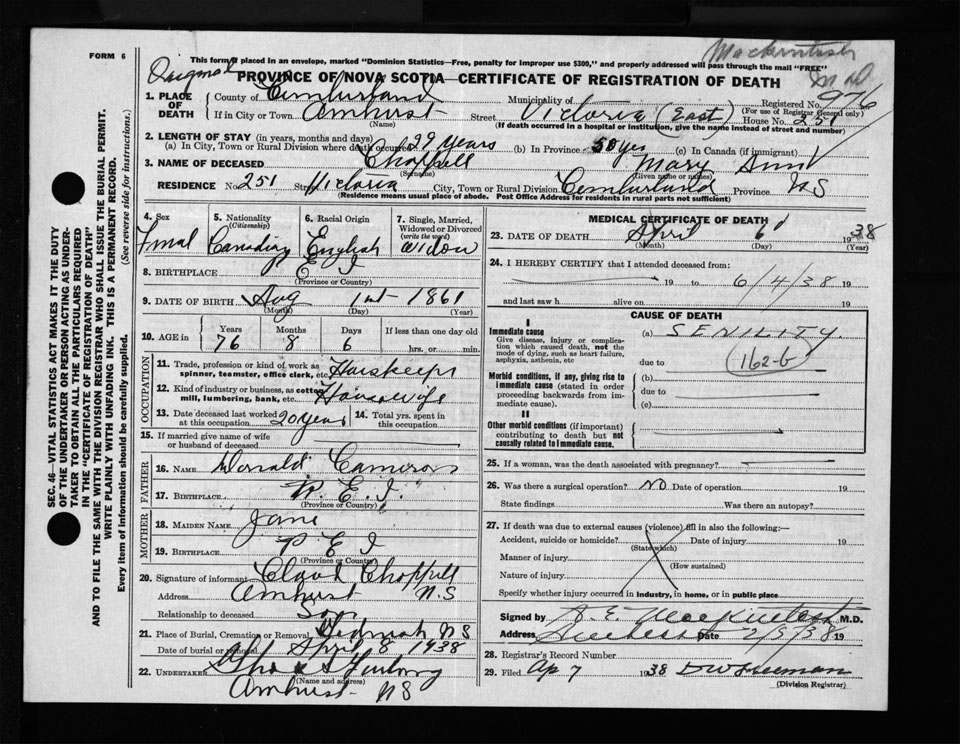 Mackintosh
FORM 6
This form if placed in an envelope, marked "Dominion Statistics—Free, penalty for improper use $300," and properly addressed will pass through the mail "FREE"
Original
PROVINCE OF NOVA SCOTIA—CERTIFICATE OF REGISTRATION OF DEATH
1. PLACE OF DEATH
County of Cumburland Municipality of Registered No. 976
(For use of Registrar General only)
If in City or Town Amhurst Street Victoria (East) House No. 251
(Name) (If death occurred in a hospital or institution, give the name instead of street and number)
2. LENGTH OF STAY (in years, months and days)
(a) In City, Town or Rural Division where death occured 29 years (b) In Province 50 yrs (c) In Canada (if immigrant)
3. NAME OF DECEASED Chappell Mary Ann
(Surname) (Given name or names)
RESIDENCE No. 251 Street Victoria City, Town or Rural Division Cumburland Province NS
(Residence means usual place of abode. Post Office Address for residents in rural parts not sufficient)
4. Sex Fmal
5. Nationality (Citizenship) Canadian
6. Racial Origin English
7. Single, Married, Widowed or Divorced (write the word) Widow
8. BIRTHPLACE P E I
(Province or Country)
9. DATE OF BIRTH Aug 1st 1861
(Month) (Day) (Year)
10. AGE in Years 76 Months 8 Days 6 If less than one day old hrs. or min.
OCCUPATION
11. Trade, profession or kind of work as spinner, teamster, office clerk, etc.
12. Kind of industry or business, as cotton mill, lumbering, bank, etc. Housewife
13. Date deceased last worked at this occupation 20 years 14. Total yrs. spent in this occupation
15. If married give name of wife or husband of deceased
FATHER
16. NAME Donald Cameron
17. BIRTHPLACE P. E. I.
(Province or Country)
MOTHER
18. MAIDEN NAME Jane
19. BIRTHPLACE P E I
(Province or Country)
20. Signature of informant Claud Chappell
Address Amhurst N.S
Relationship to deceased Son
21. Place of Burial, Cremation or Removal NS
Date of burial or removal April 8 1938
22. UNDERTAKER
(Name and address)
Amhurst NS
MEDICAL CERTIFICATE OF DEATH
23. DATE OF DEATH April 6 1938
(Month) (Day) (Year)
24. I HEREBY CERTIFY that I attended deceased from:
19 to 6/4/38 19
and last saw h alive on 19
CAUSE OF DEATH
I
Immediate cause
Give disease, injury or complication which caused death, not the mode of dying, such as heart failure, asphyxia, asthenia, etc
(a) SENILITY.
due to 162-b
Morbid conditions, if any, giving rise to immediate cause (stated in order proceeding backwards from immediate cause).
(b)
due to
(c)
II
Other morbid conditions (if important) contributing to death but not causally related to immediate cause.
25. If a woman, was the death associated with pregnancy?
26. Was there a surgical operation? NO Date of operation 19
State findings Was there an autopsy?
27. If death was due to external causes (violence) fill in also the following:
Accident, suicide or homicide? Date of injury 19
(State which)
Manner of injury
(How sustained)
Nature of injury
Specify whether injury occurred in industry, in home, or in public place
Signed by A. E. Mackintosh M.D.
Address Amherst Date 2/5/38 19
28. Registrar's Record Number
29. Filed Ap 7 1938
(Division Registrar)
SEC. 46—VITAL STATISTICS ACT MAKES IT THE DUTY
OF THE UNDERTAKER OR PERSON ACTING AS UNDER-
TAKER TO OBTAIN ALL THE PARTICULARS REQUIRED
IN THE "CERTIFICATE OF REGISTRATION OF DEATH"
AND TO FILE THE SAME WITH THE DIVISION REGISTRAR WHO SHALL ISSUE THE BURIAL PERMIT.
WRITE PLAINLY WITH UNFADING INK. THIS IS A PERMANENT RECORD.
Every item of information should be carefully supplied. (See reverse side for instructions.)